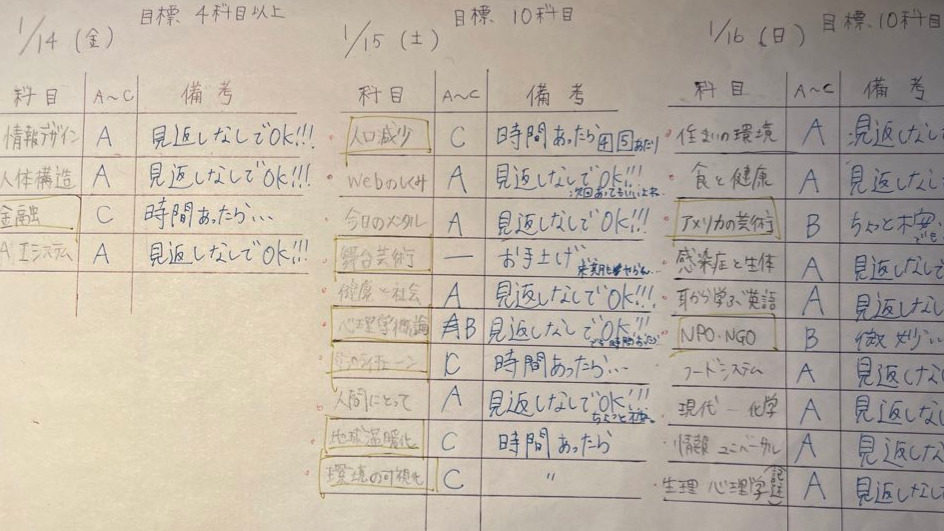 1/14 (金) 目標、4科目以上
科目 A~C 備考
情報デザイン A 見返しなしでOK!!!
人体構造 A 見返しなしでOK!!!
金融 C 時間あったら...
AIシステム A 見返しなしでOK!!!
1/15 (土) 目標、10科目
科目 A~C 備考
人口減少 C 時間あったら 4 5 あたり
Webのしくみ A 見返しなしでOK!!!
今日のメンタル A 見返しなしでOK!!!
舞台芸術 ー お手上げ
健康と社会 A 見返しなしでOK!!!
心理学概論 B 見返しなしでOK!!!
C 時間あったら...
人間にとって A 見返しなしでOK!!!
地球温暖化 C 時間あったら
環境の可視化 C 〃
1/16 (日) 目標、10科目
科目 A~C 備考
住まいの環境 A 見返しな
食と健康 A 見返しな
アメリカの芸術 B ちょっと不安
感染症と生体 A 見返しなして
耳から学ぶ英語 A 見返しな
NPO・NGO B 微妙
フードシステム A 見返しな
現代 ー 化学 A 見返しな
情報 ユニバーサル A 見返しな
生理 心理学 (記述) A 見返しな